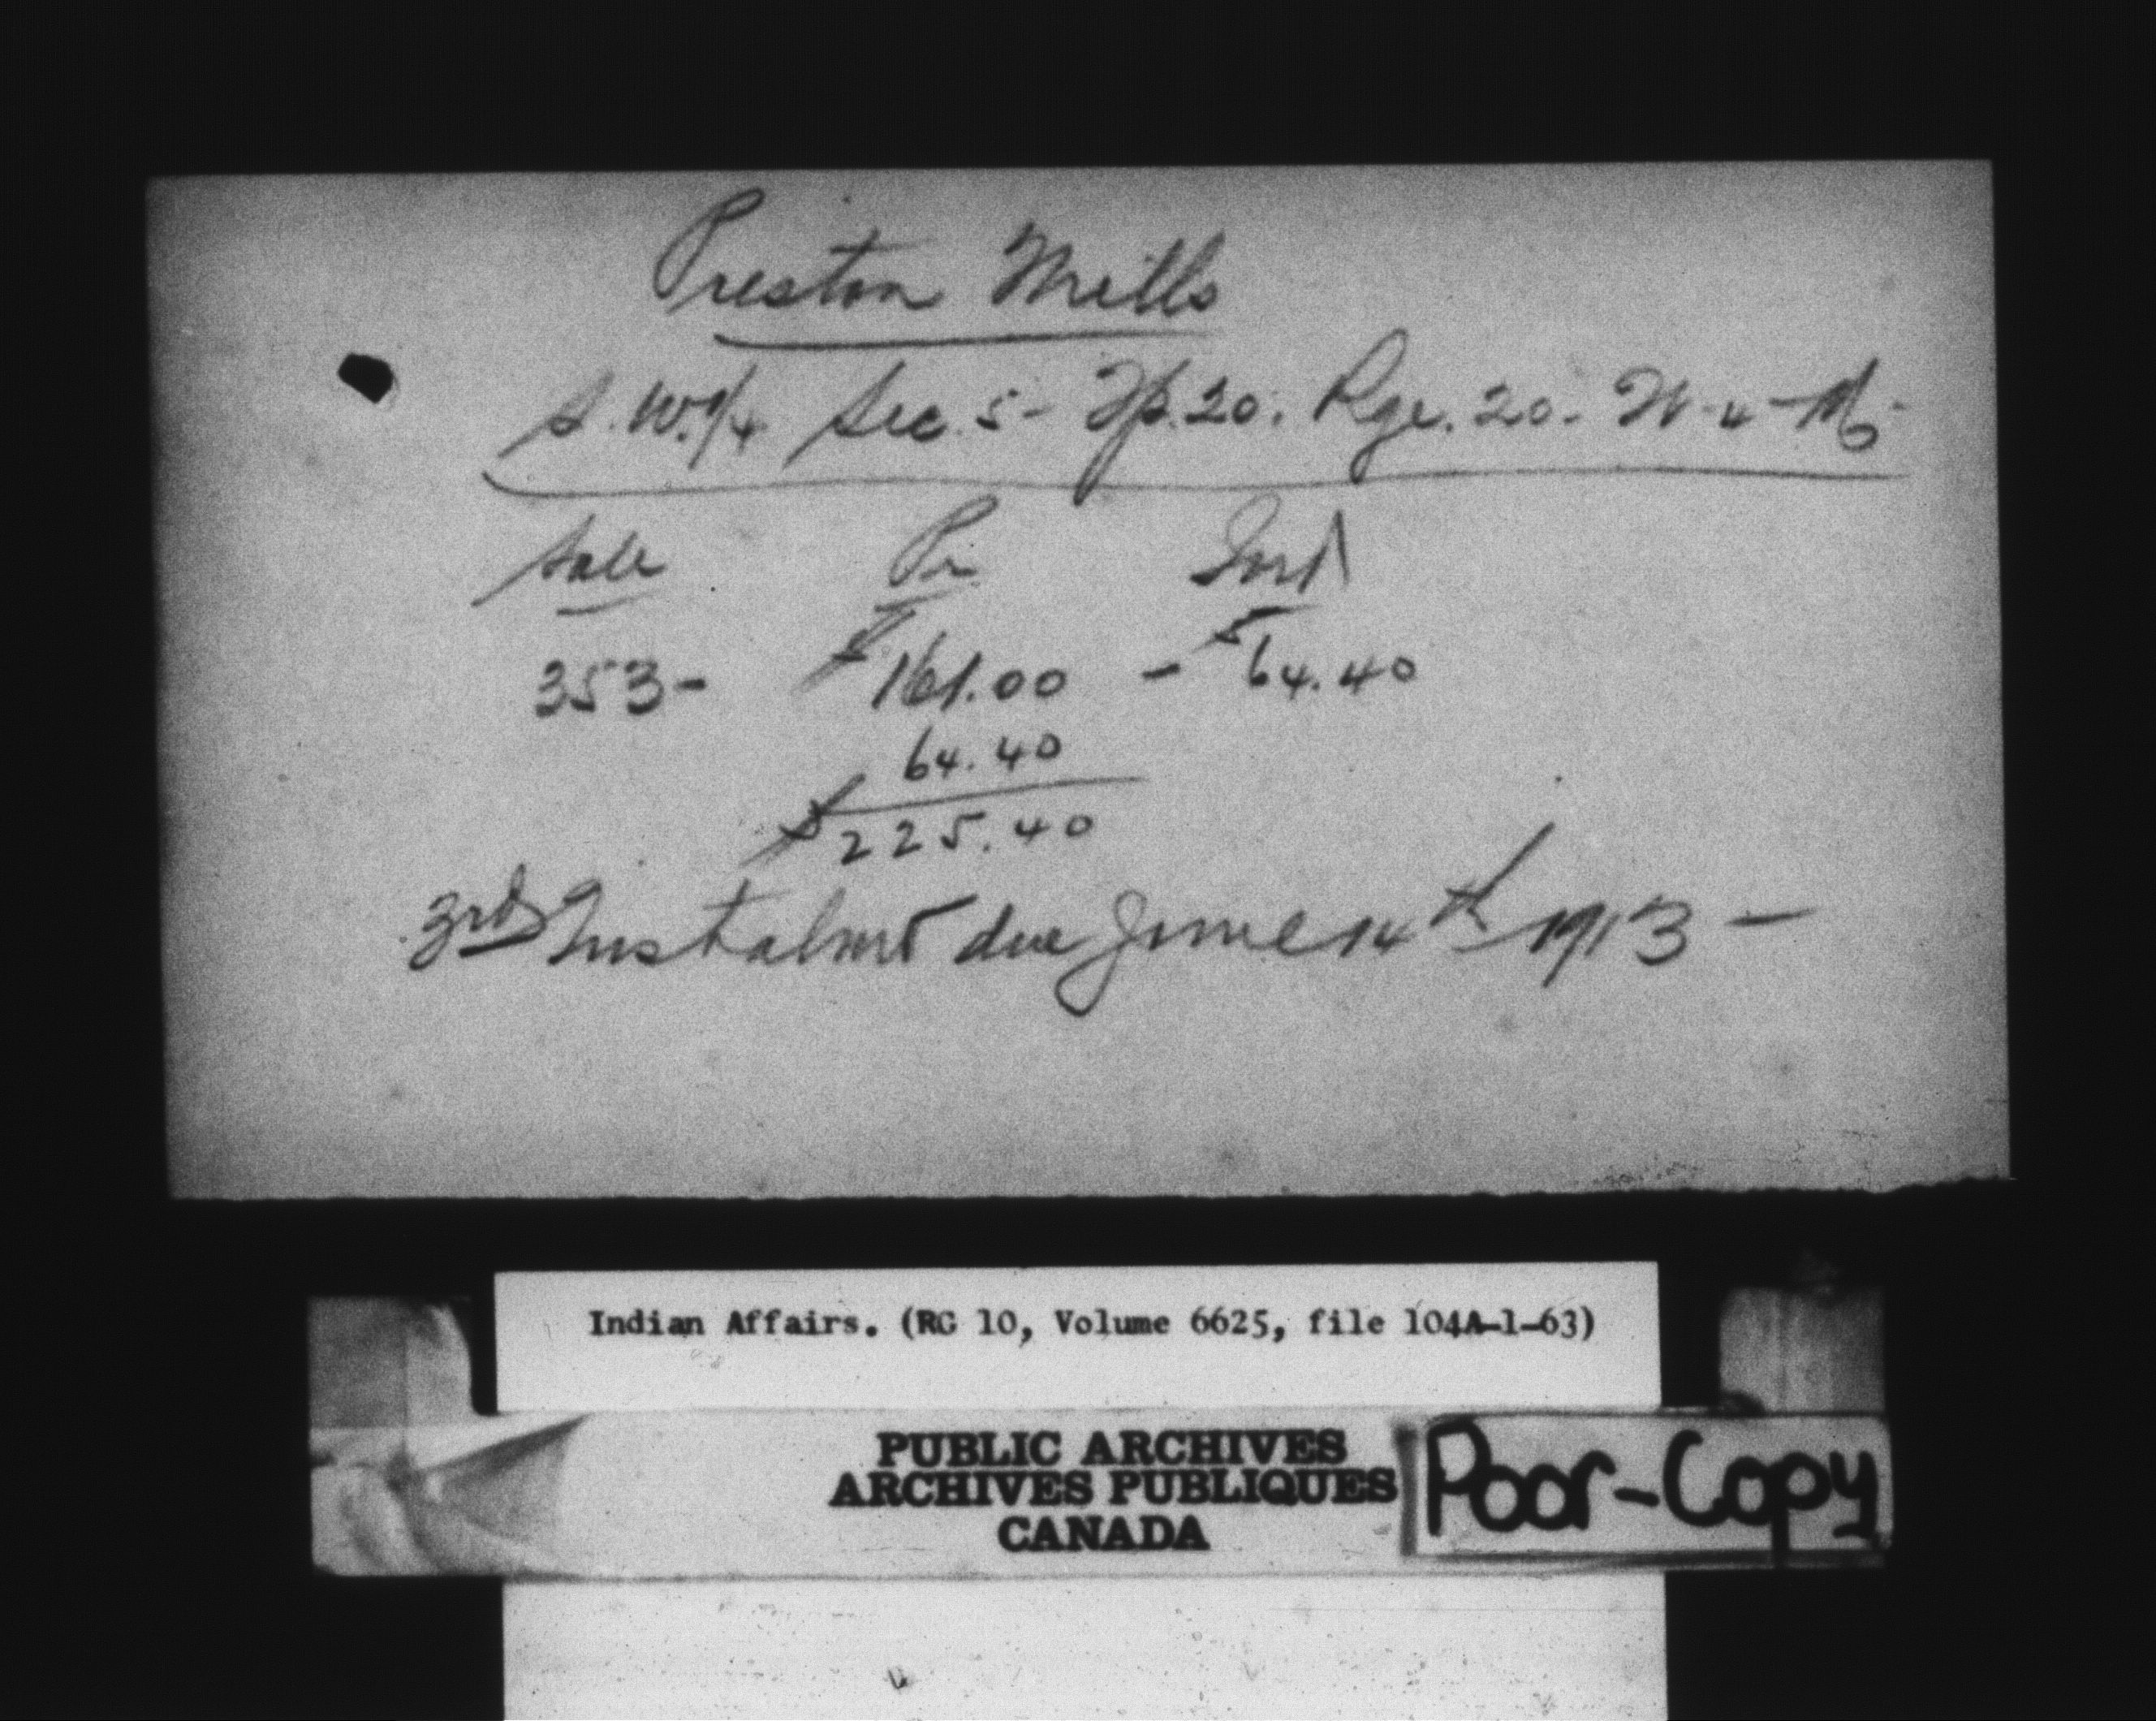 Preston Mills
S.W.1/4 Sec. 5 - Tp. 20. Rge. 20. W - 4 - M -
Sale Pr Int
353 - $161.00 - $64.40
64.40
$225.40
3rd Instalmt due June 14th 1913 -
Indian Affairs. (RG 10, Volume 6625, file 104A-1-63)
PUBLIC ARCHIVES
ARCHIVES PUBLIQUES
CANADA
Poor-Copy